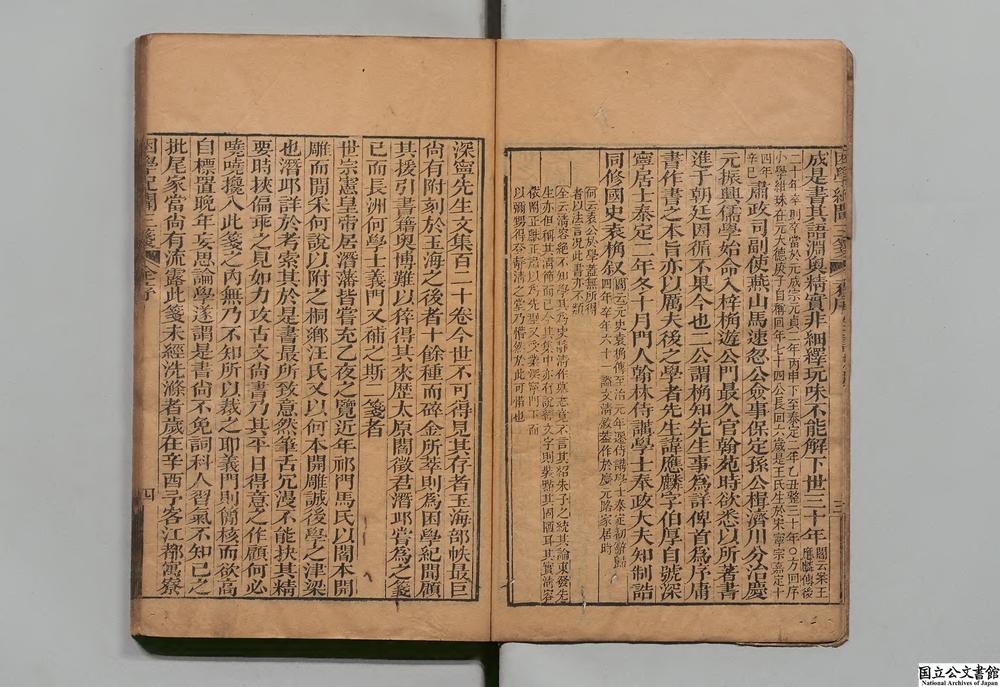 成是書其語淵奧精實非紬繹玩味不能解下世三十年閻云案王應麟傳後
二十年卒則卒當於元成宗元貞二年丙申下至泰定二年乙丑整三十年〇方回序
小學紺珠在元大德庚子自稱回年七十四公長回六歲是王氏生於宋寧宗嘉定十
四年辛巳肅政司副使燕山馬速忽公僉事保定孫公楫濟川分治慶
元振興儒學始命入梓桷遊公門最久官翰苑時欲悉以所著書
進于朝廷因循不果今也二公謂桷知先生事為詳俾首為序庸
書作書之本旨亦以厲夫後之學者先生諱應麟字伯厚自號深
寧居士泰定二年冬十月門人翰林侍講學士奉政大夫知制誥
同修國史袁桷敘閻云元史袁桷傳至治元年遷侍講學士泰定初辭歸四年卒年六十諡文清敘蓋作於慶元路家居時
何云袁公於學蓋無所得
者以法言況此書亦不類
全云清容絕不知學其為史靜清作墓志竟不言其紹朱子之統其論東發先
生亦但稱其清節而已今其集中亦有說經文字則其固陋耳其實清容
三
深寧先生文集百二十卷今世不可得見其存者玉海部帙最巨
尚有附刻於玉海之後者十餘種而碎金所萃則為困學紀聞顧
其援引書籍奧博難以猝得其來歷太原閻徵君潛邱嘗為之箋
已而長洲何學士義門又補之斯二箋者
世宗憲皇帝居潛藩皆嘗充乙夜之覽近年祁門馬氏以閻本開
雕而間采何說以附之桐鄉汪氏又以何本開雕誠後學之津梁
也潛邱詳於考索其於是書最所致意然筆舌冗漫不能抉其精
要時挾偏乖之見如力攻古文尚書乃其平日得意之作顧何必
嘵嘵攙入此箋之內無乃不知所以裁之耶義門則簡核而欲高
自標置晚年妄思論學遂謂是書尚不免詞科人習氣不知己之
批尾家當尚有流露此箋未經洗滌者歲在辛酉予客江都寓寮
困學紀聞三箋 全序 四
国立公文書館
National Archives of Japan